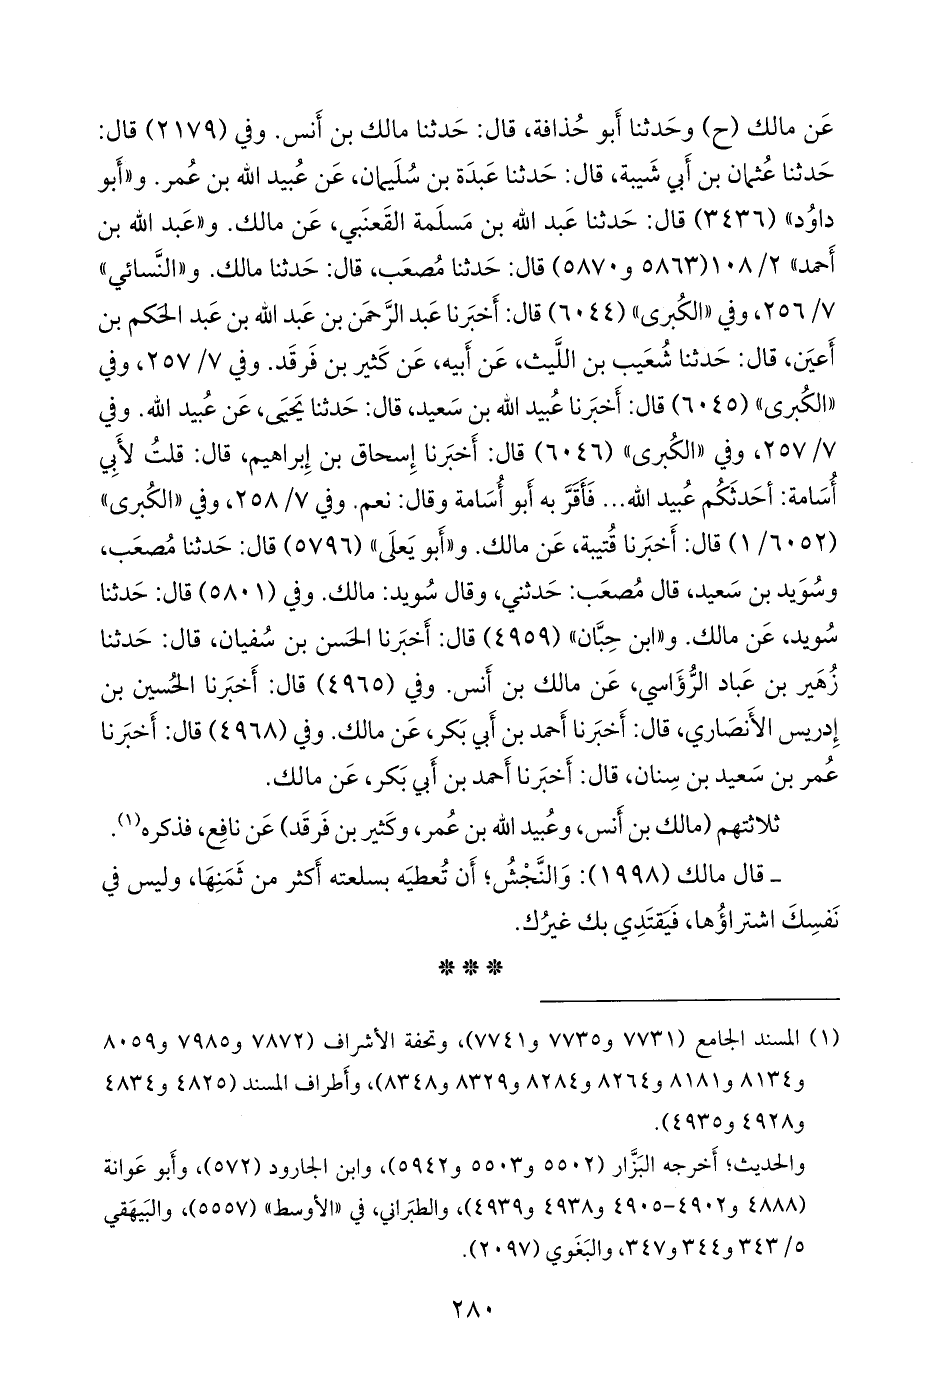 عَن مالك (ح) وحَدثنا أَبو حُذافة، قال: حَدثنا مالك بن أَنس. وفي (٢١٧٩) قال:
حَدثنا عُثمان بن أَبي شَيبة، قال: حَدثنا عَبدَة بن سُلَيمان، عَن عُبيد الله بن عُمر. و«أَبو
داوُد» (٣٤٣٦) قال: حَدثنا عَبد الله بن مَسلَمة القَعنَبي، عَن مالك. و«عَبد الله بن
أَحمد» ٢/ ١٠٨(٥٨٦٣ و٥٨٧٠) قال: حَدثنا مُصعَب، قال: حَدثنا مالك. و«النَّسائي»
٧/ ٢٥٦، وفي «الكُبرى» (٦٠٤٤) قال: أَخبَرنا عَبد الرَّحمَن بن عَبد الله بن عَبد الحَكم بن
أَعيَن، قال: حَدثنا شُعَيب بن اللَّيث، عَن أَبيه، عَن كَثير بن فَرقَد. وفي ٧/ ٢٥٧، وفي
«الكُبرى» (٦٠٤٥) قال: أَخبَرنا عُبيد الله بن سَعيد، قال: حَدثنا يَحيَى، عَن عُبيد الله. وفي
٧/ ٢٥٧، وفي «الكُبرى» (٦٠٤٦) قال: أَخبَرنا إِسحاق بن إِبراهيم، قال: قلتُ لأَبي
أُسَامة: أَحَدثَكُم عُبيد الله... فَأَقَرَّ به أَبو أُسَامة وقال: نعم. وفي ٧/ ٢٥٨، وفي «الكُبرى»
(٦٠٥٢/ ١) قال: أَخبَرنا قُتيبة، عَن مالك. و«أَبو يَعلَى» (٥٧٩٦) قال: حَدثنا مُصعَب،
وسُوَيد بن سَعيد، قال مُصعَب: حَدثني، وقال سُويد: مالك. وفي (٥٨٠١) قال: حَدثنا
سُويد، عَن مالك. و«ابن حِبَّان» (٤٩٥٩) قال: أَخبَرنا الحَسن بن سُفيان، قال: حَدثنا
زُهَير بن عَباد الرُّؤَاسي، عَن مالك بن أَنس. وفي (٤٩٦٥) قال: أَخبَرنا الحُسين بن
إِدريس الأَنصَاري، قال: أَخبَرنا أَحمد بن أَبي بَكر، عَن مالك. وفي (٤٩٦٨) قال: أَخبَرنا
عُمر بن سَعيد بن سِنان، قال: أَخبَرنا أَحمد بن أَبي بَكر، عَن مالك.
ثلاثتهم (مالك بن أَنس، وعُبيد الله بن عُمر، وكَثير بن فَرقَد) عَن نافِع، فذكره(١).
ـ قال مالك (١٩٩٨): وَالنَّجْشُ؛ أَن تُعطيَه بسلعته أَكثر من ثَمَنِهَا، وليس في
نَفسِكَ اشتراؤُها، فَيَقتَدِي بك غيرُك.
* * *
(١) المسند الجامع (٧٧٣١ و٧٧٣٥ و٧٧٤١)، وتحفة الأشراف (٧٨٧٢ و٧٩٨٥ و٨٠٥٩
و٨١٣٤ و٨١٨١ و٨٢٦٤ و٨٢٨٤ و٨٣٢٩ و٨٣٤٨)، وأَطراف المسند (٤٨٢٥ و٤٨٣٤
و٤٩٢٨ و٤٩٣٥).
والحديث؛ أَخرجه البَزَّار (٥٥٠٢ و٥٥٠٣ و٥٩٤٢)، وابن الجارود (٥٧٢)، وأَبو عَوانة
(٤٨٨٨ و٤٩٠٢-٤٩٠٥ و٤٩٣٨ و٤٩٣٩)، والطبَراني، في «الأَوسط» (٥٥٥٧)، والبَيهَقي
٥/ ٣٤٣ و٣٤٤ و٣٤٧، والبَغَوي (٢٠٩٧).
٢٨٠